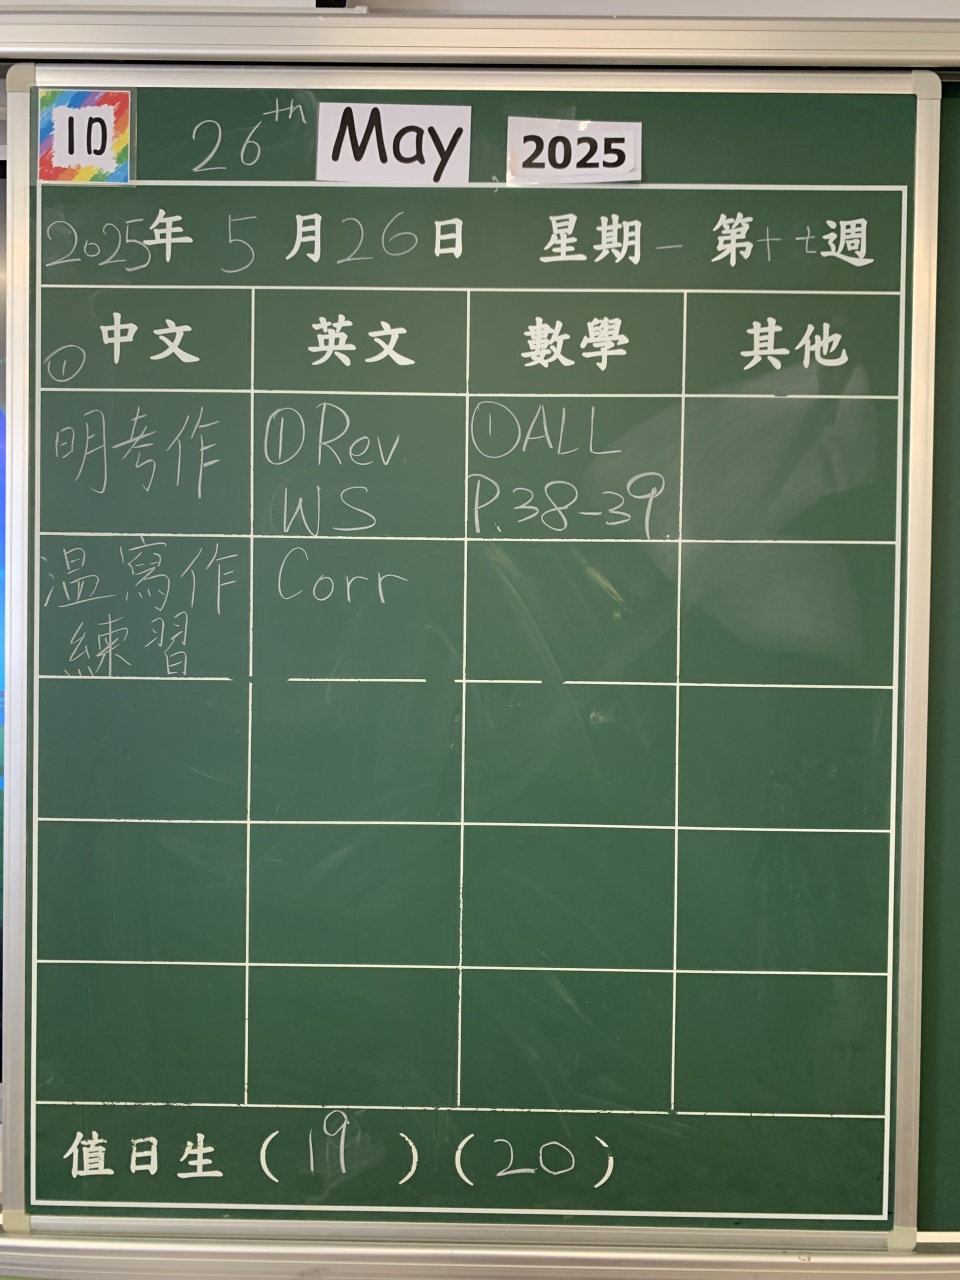 1D 26th May, 2025
2025年 5月26日 星期一 第十七週
中文 英文 數學 其他
①
明考作 ①Rev. ①ALL
WS P.38-39.
温寫作 Corr
練習
值日生 (19) (20)